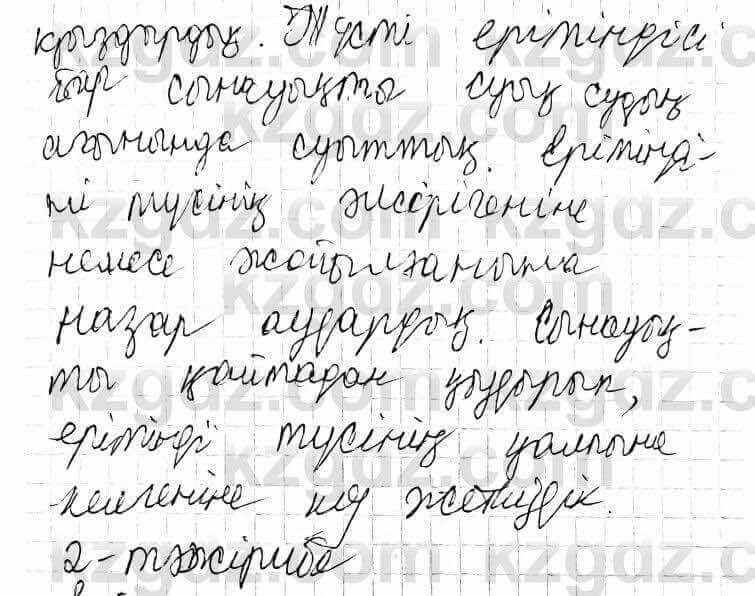 қыздырдық. Түсті ерітіндісі
бар сынауықты суық судың
ағынында суыттық. Ерітінді-
нің түсінің жегіргеніне
немесе жойылғанына
назар аудардық. Сынауық-
ты қайтадан қыздырып,
ерітінді түсінің қалпына
келгеніне көз жеткіздік.
2-тәжірибе